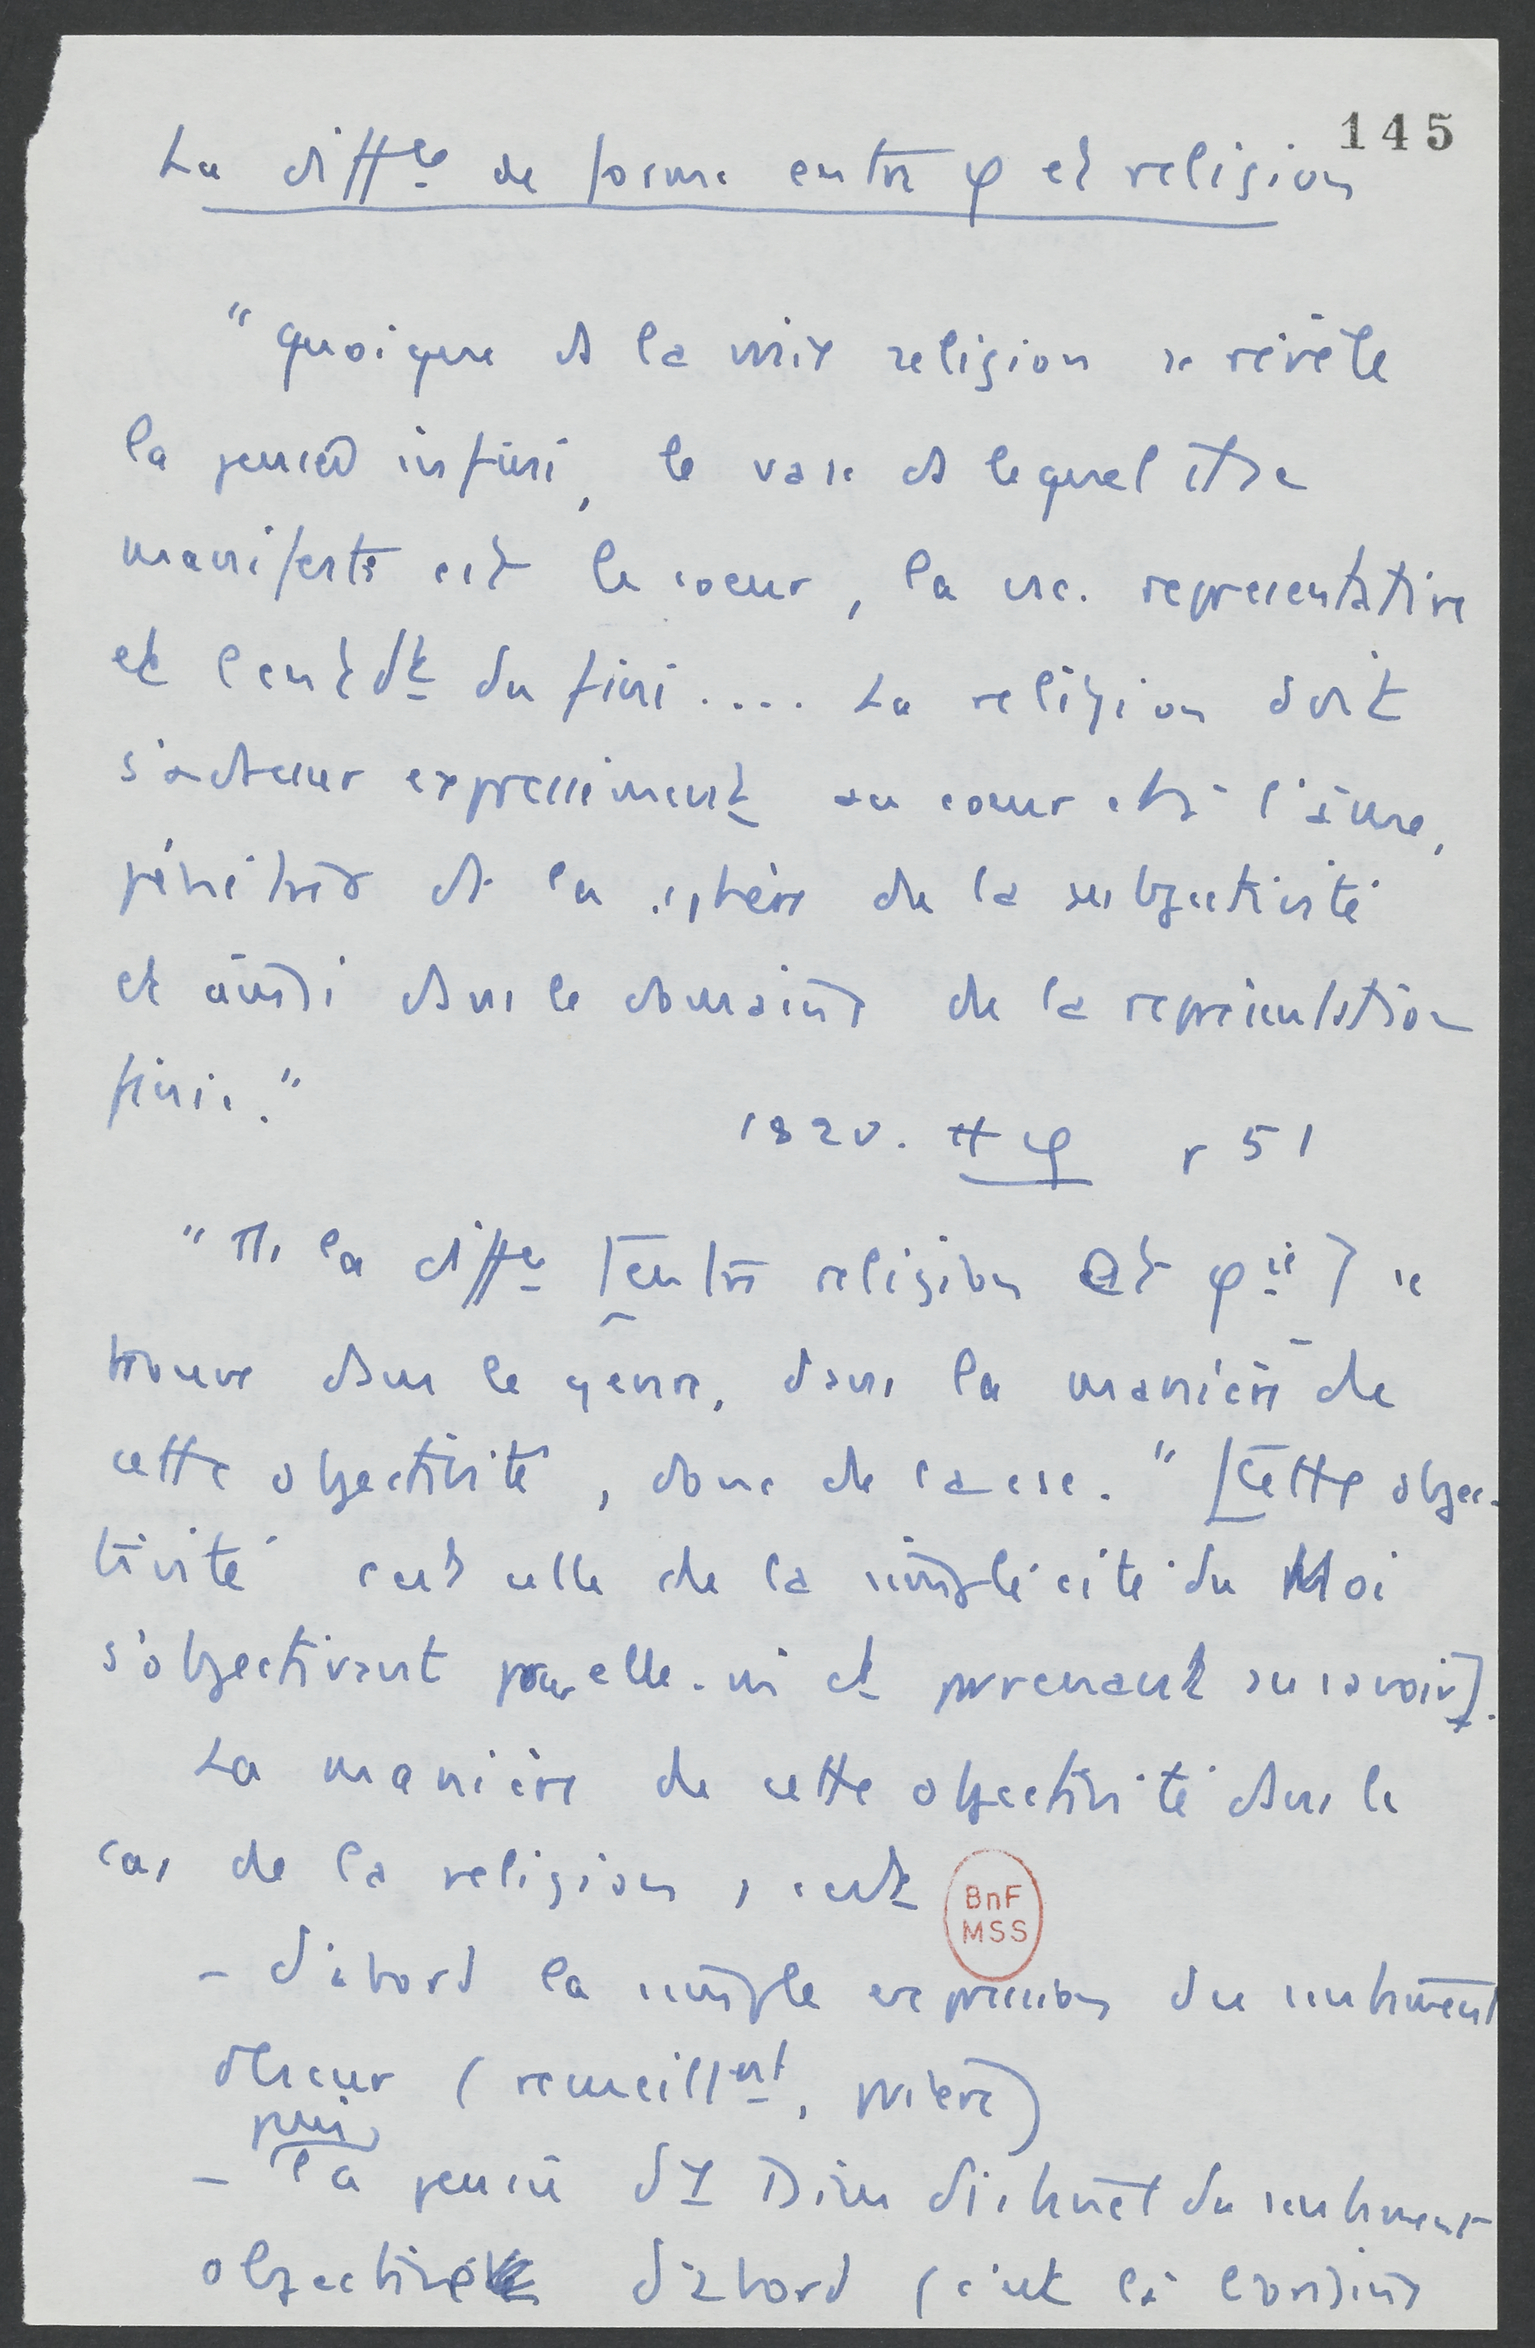 145
La diffce de forme entre φ et religion
"quoique ds la vraie religion se révèle
la pensée infinie, le vase ds lequel elle se
manifeste est le coeur, la csc. représentative
et l'entdt du fini .... La religion doit
s'adresser expressément au coeur et à l'âme,
pénétrer ds la sphère de la subjectivité
et ainsi dans le domaine de la représentation
finie."
1820. H φ p 51
"Ms la diffce [entre religion et φie] se
trouve dans le genre, dans la manière de
cette objectivité, donc de la csc." [Cette objec-
tivité est celle de la simplicité du Moi
s'objectivant pour elle-m et prenant au savoir].
La manière de cette objectivité dans le
cas de la religion, c'est
- d'abord la simple expression du sentiment
obscur (recueillent, prière)
puis
- la pensée d'1 Dieu distinct du sentiment
objectivé d'abord (c'est là l'origine